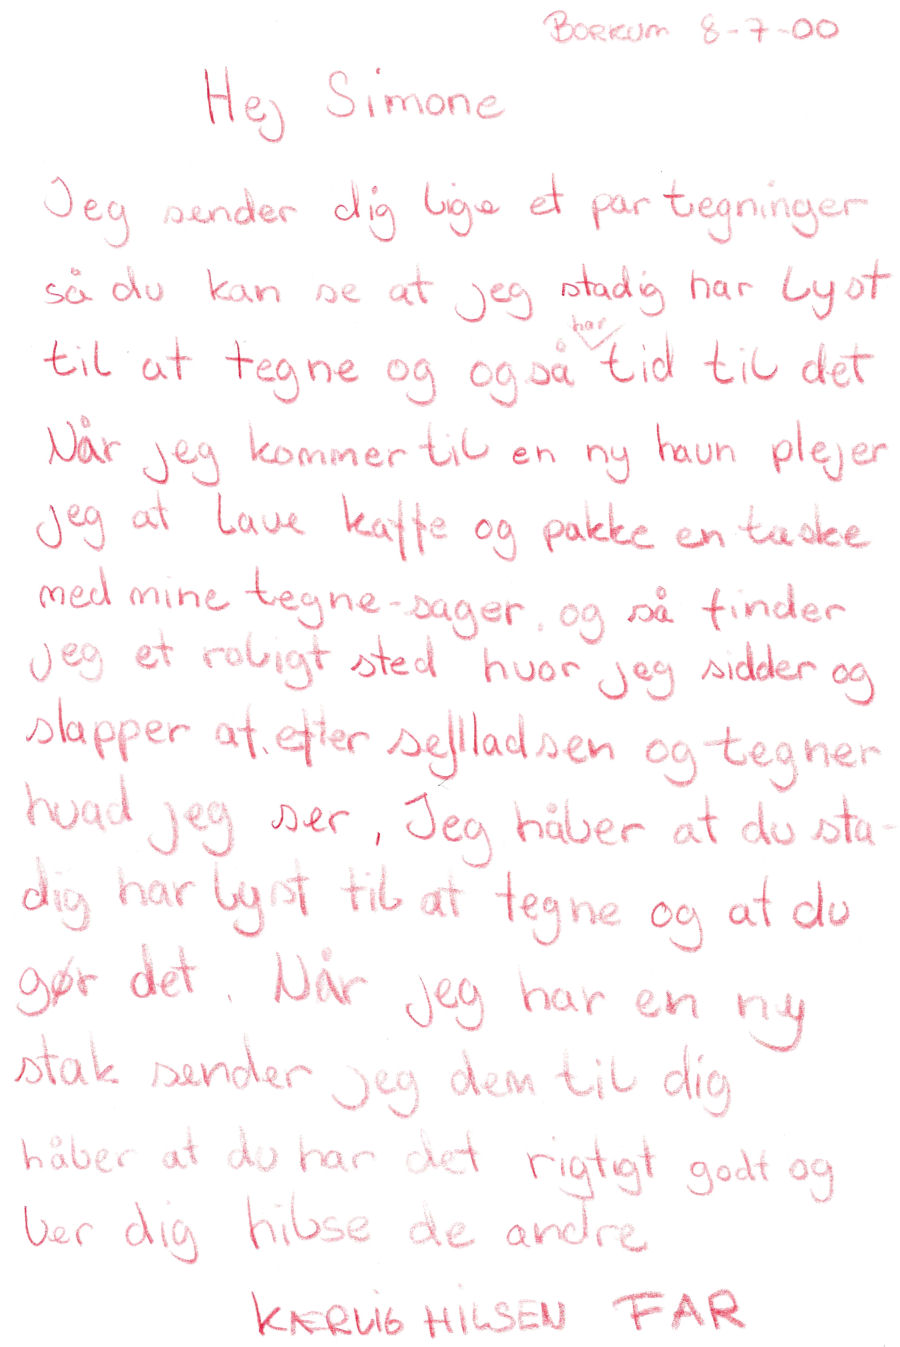 BORKUM 8-7-00
Hej Simone
Jeg sender dig lige et par tegninger
så du kan se at jeg stadig har lyst
til at tegne og også har tid til det
Når jeg kommer til en ny havn plejer
jeg at lave kaffe og pakke en taske
med mine tegne-sager, og så finder
jeg et roligt sted hvor jeg sidder og
slapper af, efter sejlladsen og tegner
hvad jeg ser, Jeg håber at du sta-
dig har lyst til at tegne og at du
gør det. Når jeg har en ny
stak sender jeg dem til dig
håber at du har det rigtigt godt og
ber dig hilse de andre
KÆRLIG HILSEN FAR